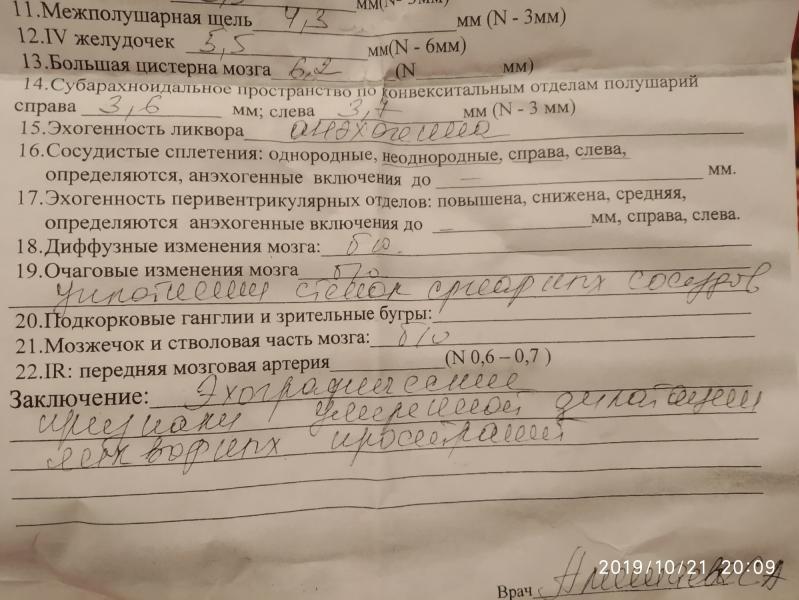 11.Межполушарная щель 4,3 мм (N - 3мм)
12.IV желудочек 5,5 мм(N - 6мм)
13.Большая цистерна мозга 6.2 (N мм)
14.Субарахноидальное пространство по конвекситальным отделам полушарий
справа 3,6 мм; слева 3,7 мм (N - 3 мм)
15.Эхогенность ликвора анэхогенна
16.Сосудистые сплетения: однородные, неоднородные, справа, слева,
определяются, анэхогенные включения до — мм.
17.Эхогенность перивентрикулярных отделов: повышена, снижена, средняя,
определяются анэхогенные включения до — мм, справа, слева.
18.Диффузные изменения мозга: б/о.
19.Очаговые изменения мозга б/о
уплотнении стенок сосудов
20.Подкорковые ганглии и зрительные бугры:
21.Мозжечок и стволовая часть мозга: б/о
22.IR: передняя мозговая артерия (N 0,6 – 0,7 )
Заключение: Эхографические
признаки умеренной дилатации
ликворных пространств
Врач
2019/10/21 20:09